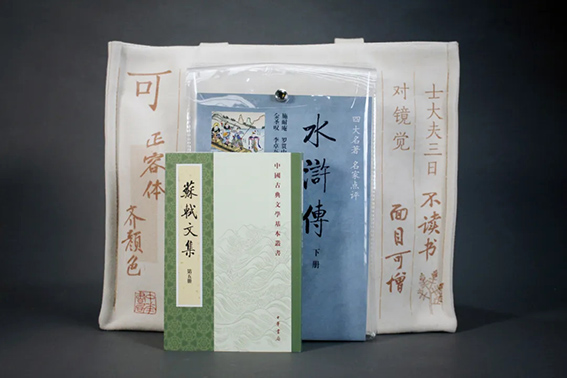 士大夫三日
不读书
对镜觉
面目可憎
四大名著 名家点评
水滸傳
下册
施耐庵 罗贯中
金圣叹 李卓
中國古典文學基本叢書
蘇軾文集
第五册
中華書局
可
正容体
齐颜色